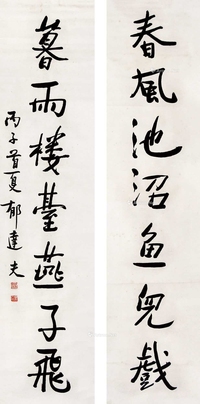 春風池沼鱼兒戲
暮雨楼臺燕子飛
丙子首夏郁達夫